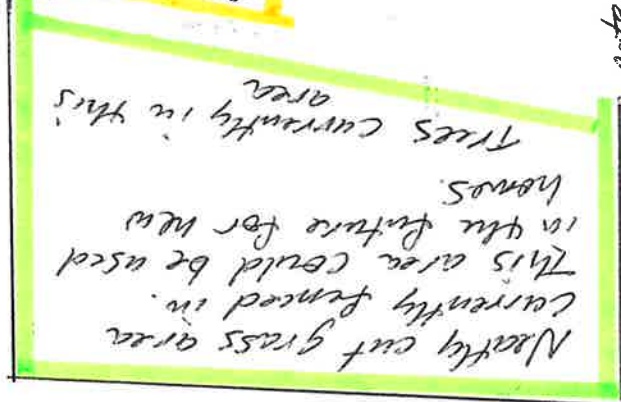 Neatly cut grass area
currently fenced in.
This area could be used
in the future for new
homes.
Trees currently in this
area